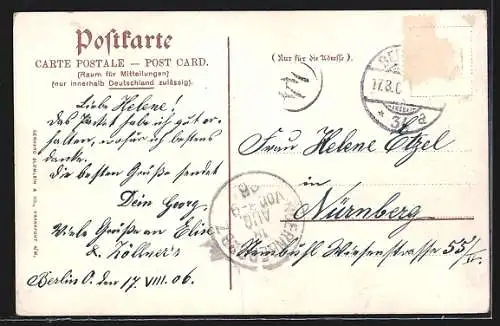 Postkarte
CARTE POSTALE — POST CARD.
(Raum für Mitteilungen)
(nur innerhalb Deutschland zulässig).
(Nur für die Adresse).
Liebe Helene!
Das Paket habe ich gut er-
halten, wofür ich bestens
danke.
Die besten Grüße sendet
Dein Georg.
Viele Grüße an Elise
& Zöllner's
Berlin O. den 17. VIII. 06.
17.8.0
* 3 a
Frau Helene Etzel
in
Nürnberg
Wiesenstrasse 55/II.